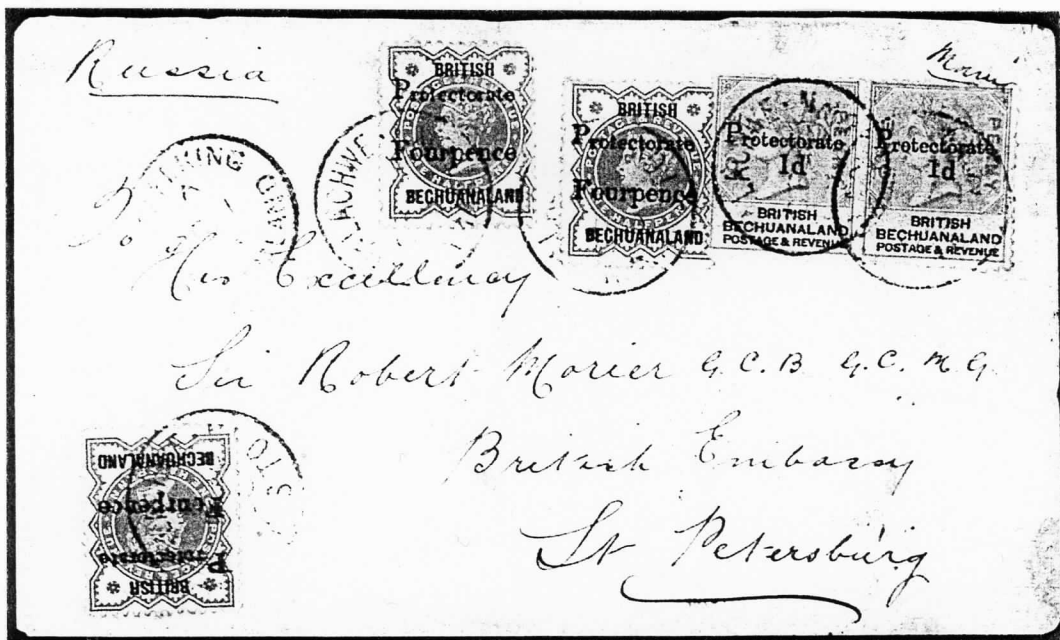 Russia
BRITISH
Protectorate
Fourpence
BECHUANALAND
BRITISH
Protectorate
Fourpence
BECHUANALAND
Protectorate
1d
BRITISH
BECHUANALAND
POSTAGE & REVENUE
PENNY
Protectorate
1d
BRITISH
BECHUANALAND
POSTAGE & REVENUE
His Excellency
Sir Robert Morier G.C.B. G.C.M.G.
British Embassy
St Petersburg
BRITISH
Protectorate
Fourpence
BECHUANALAND